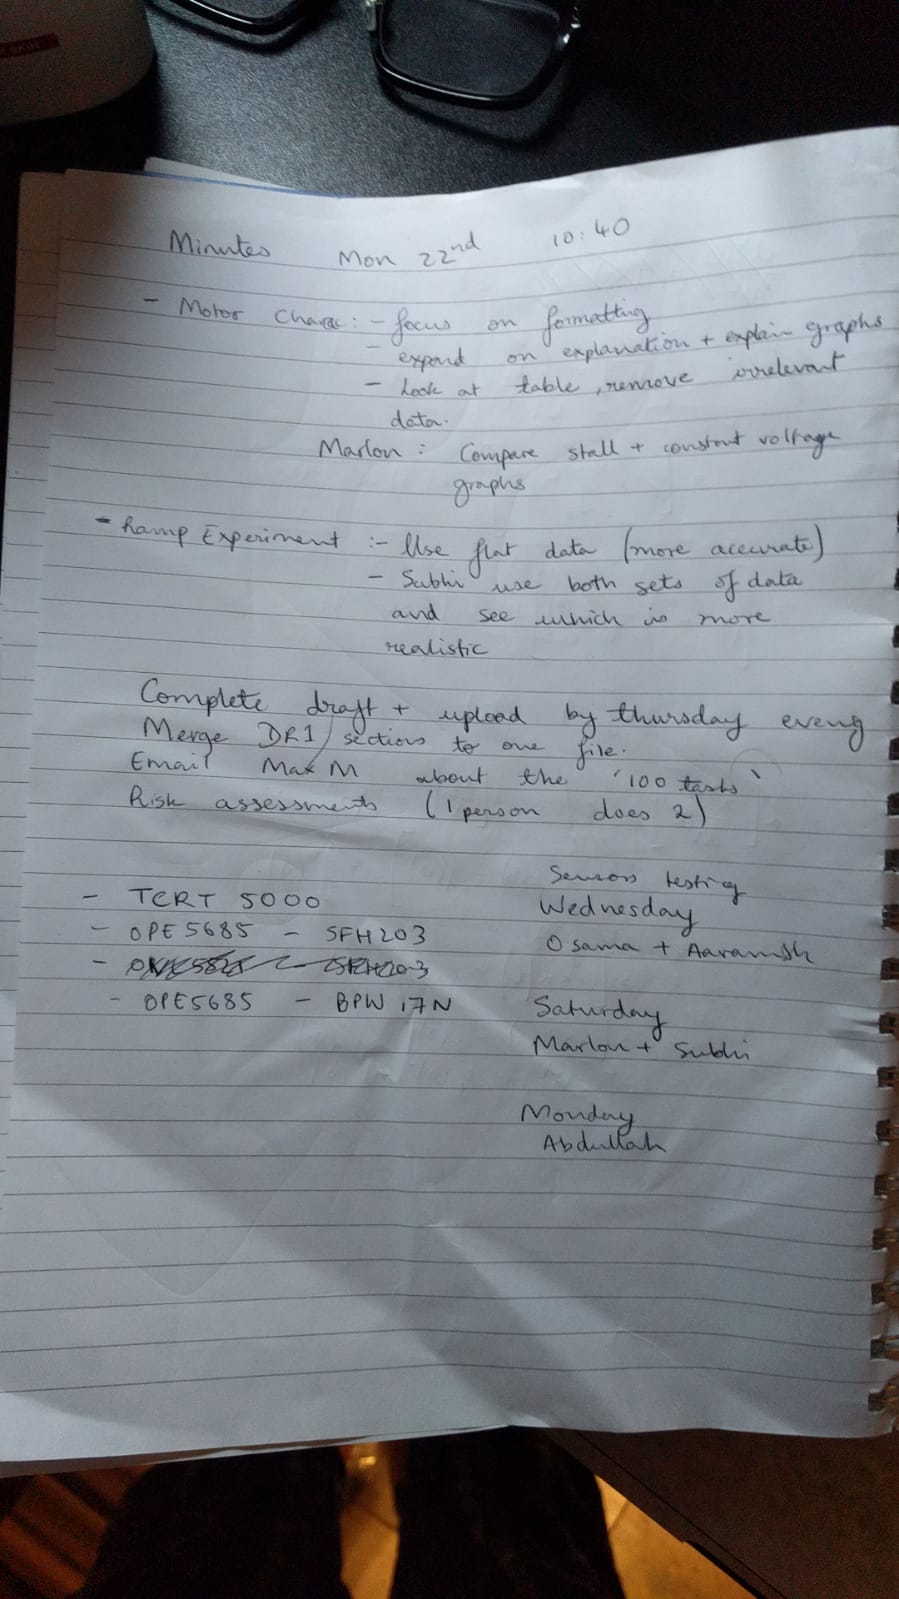 Minutes Mon 22nd 10:40
- Motor Charac: - focus on formatting
- expand on explanation + explain graphs
- Look at table, remove irrelevant
data.
Marlon: Compare stall + constant voltage
graphs
- Ramp Experiment :- Use flat data (more accurate)
- Subhi use both sets of data
and see which is more
realistic
Complete draft + upload by thursday eveng
Merge DR1 sections to one file.
Email Max M about the '100 tasks'
Risk assessments (1 person does 2)
Sensors testing
- TCRT 5000 Wednesday
- OPE5685 - SFH203 Osama + Aaramsh
- OPE5685 - BPW17N Saturday
Marlon + Subhi
Monday
Abdullah